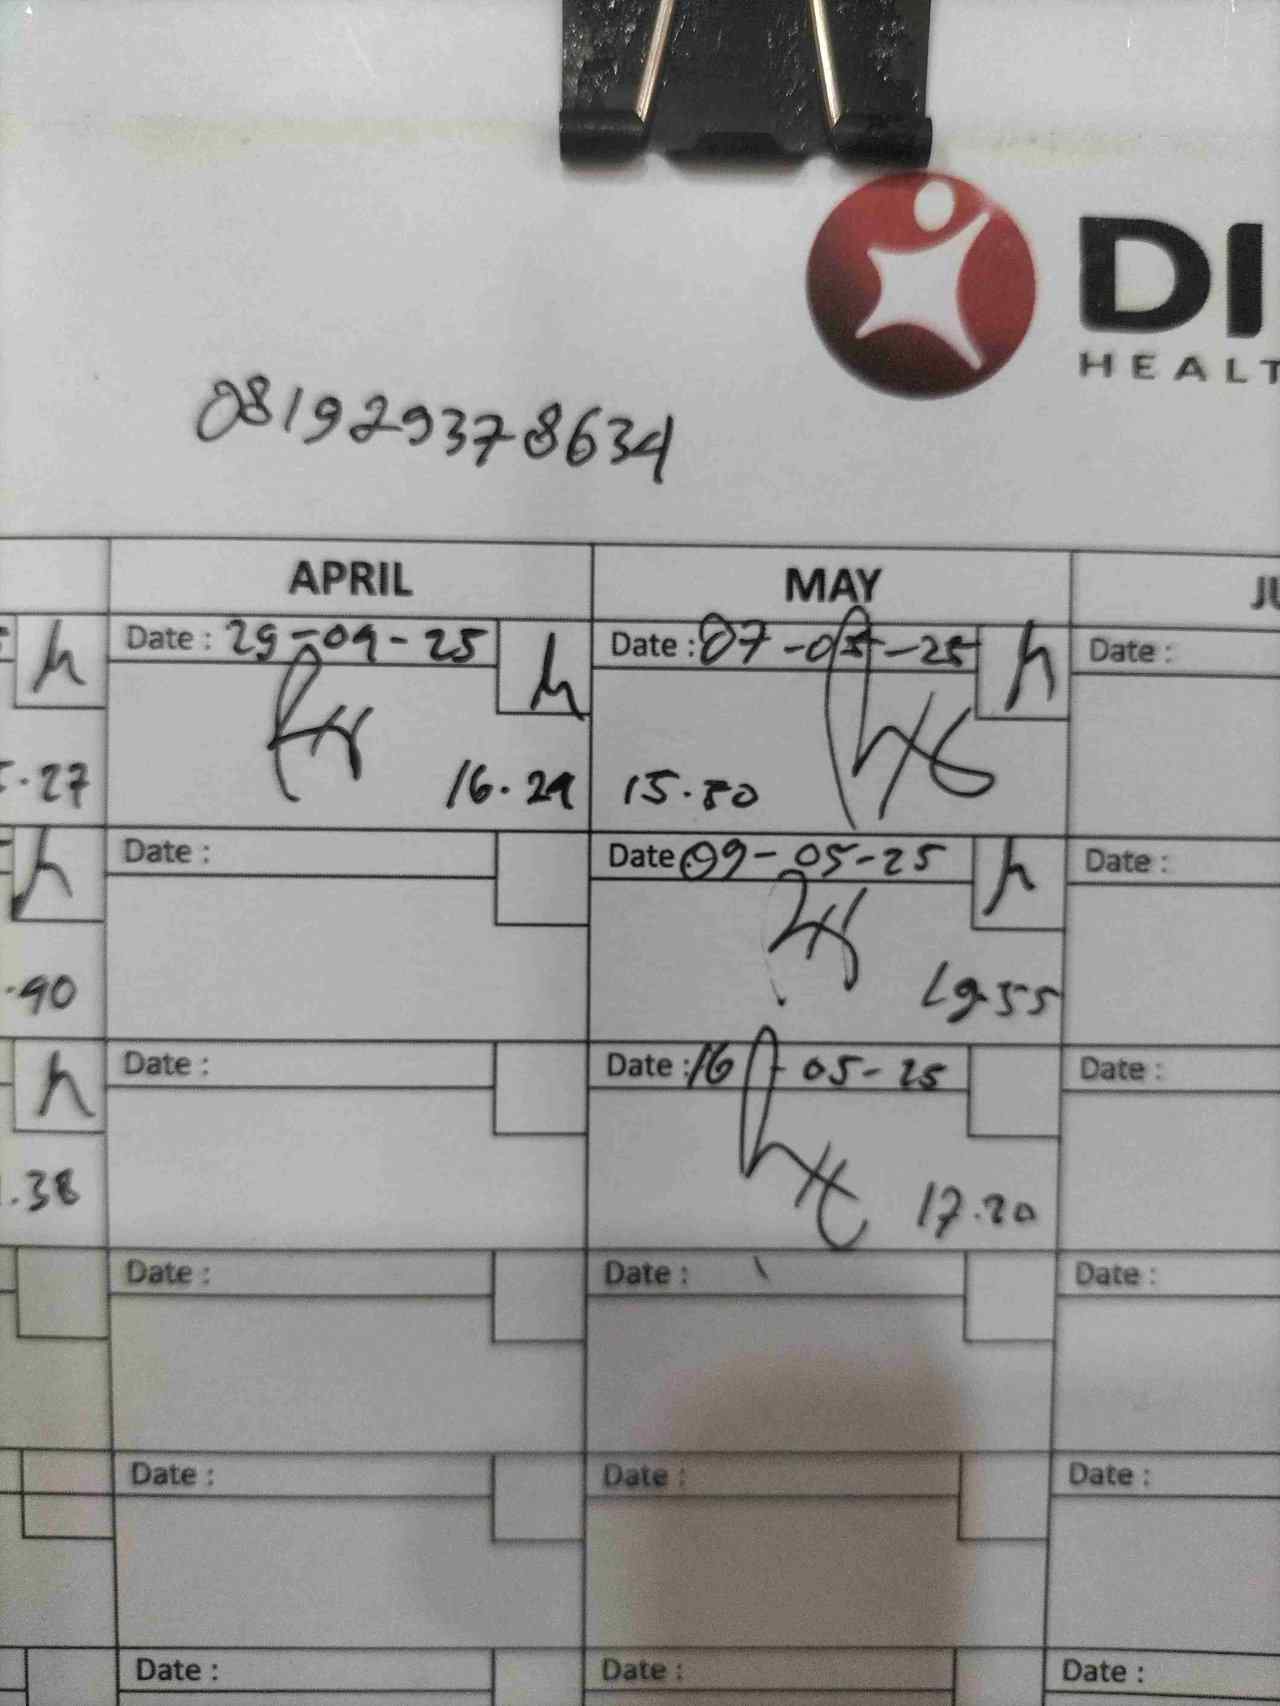 DI
HEALT
081929378634
APRIL MAY JU
Date : 29-04-25 h Date : 07-05-25 h Date :
.27 16.29 15.50
Date : Date 09-05-25 h Date :
.90 19.55
Date : Date : 16-05-25 Date :
.38 17.20
Date : Date : Date :
Date : Date : Date :
Date : Date : Date :